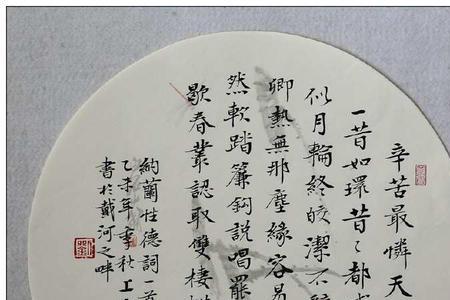 辛苦最憐天
一昔如環昔〻都
似月輪終皎潔不
卿熱無那塵緣容易
然軟踏簾鈎說唱罷
歇春叢認取雙棲
納蘭性德詞一首
乙未年季秋上
書於戴河之畔